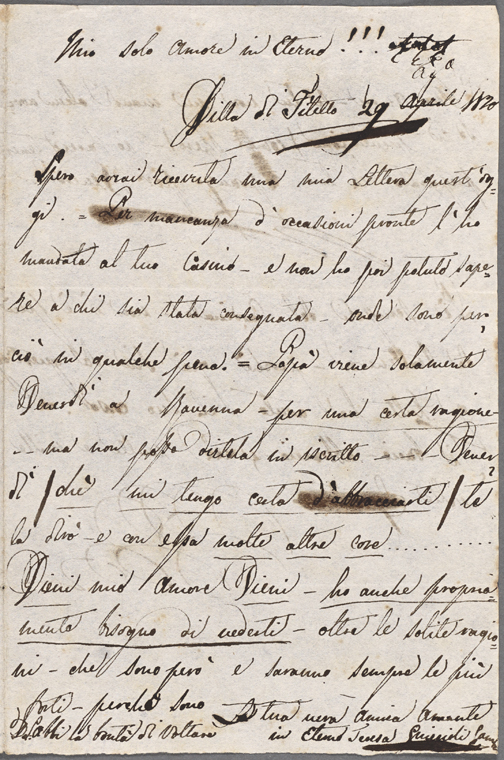 Mio solo Amore in Eterno!!!
Villa di Filetto 29 Aprile 1820
Spero avrai ricevuta una mia Lettera quest'og-
gi. = Per mancanza d'occasioni pronte l'ho
mandata al tuo Casino - e non ho poi potuto sape-
re a chi sia stata consegnata - onde sono per
ciò in qualche pena. = Papà viene solamente
Venerdì a Ravenna - per una certa ragione -
- ma non posso dirtela in iscritto - Vener
dì / chè mi tengo certa d'abbracciarti / te
la dirò - e con essa molte altre cose..........
Vieni mio Amore Vieni - ho anche propria=
mente bisogno di vederti - oltre le solite ragio=
ni - che sono però e saranno sempre le più
forti - perchè sono La tua vera amica Amante
Abbi la bontà di Voltare in Eterno Teresa